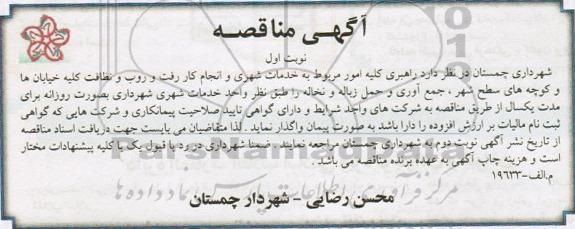 آگهی مناقصه
نوبت اول
شهرداری چمستان در نظر دارد راهبری کلیه امور مربوط به خدمات شهری و انجام کار رفت و روب و نظافت کلیه خیابان ها
و کوچه های سطح شهر ، جمع آوری و حمل زباله و نخاله را طبق نظر واحد خدمات شهری شهرداری بصورت روزانه برای
مدت یکسال از طریق مناقصه به شرکت های واجد شرایط و دارای گواهی تایید صلاحیت پیمانکاری و شرکت هایی که گواهی
ثبت نام مالیات بر ارزش افزوده را دارا باشد به صورت پیمان واگذار نماید . لذا متقاضیان می بایست جهت دریافت اسناد مناقصه
از تاریخ نشر آگهی نوبت دوم به شهرداری چمستان مراجعه نمایند . ضمنا شهرداری در رد یا قبول یک یا کلیه پیشنهادات مختار
است و هزینه چاپ آگهی به عهده برنده مناقصه می باشد .
م.الف-۱۹۶۳۳
محسن رضایی - شهردار چمستان
ParsNamadData
مرکز فرآوری اطلاعات پارس نماد داده ها